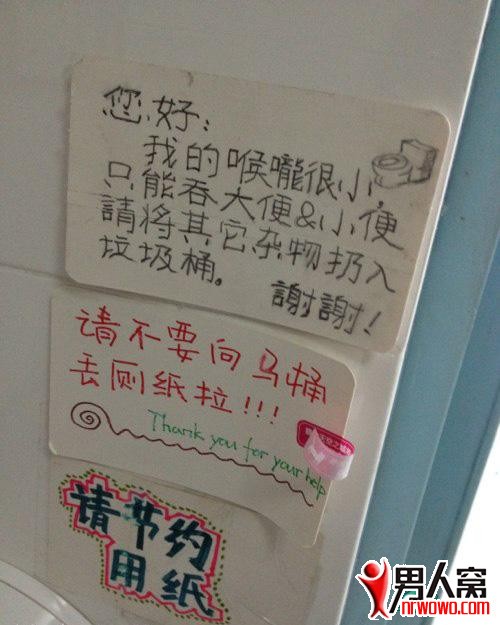 您好:
我的喉嚨很小,
只能吞大便&小便
請将其它杂物扔入
垃圾桶。
謝謝!
请不要向马桶
丢厕纸拉!!!
Thank you for your help
请节约
用纸
男人窝
nrwowo.com